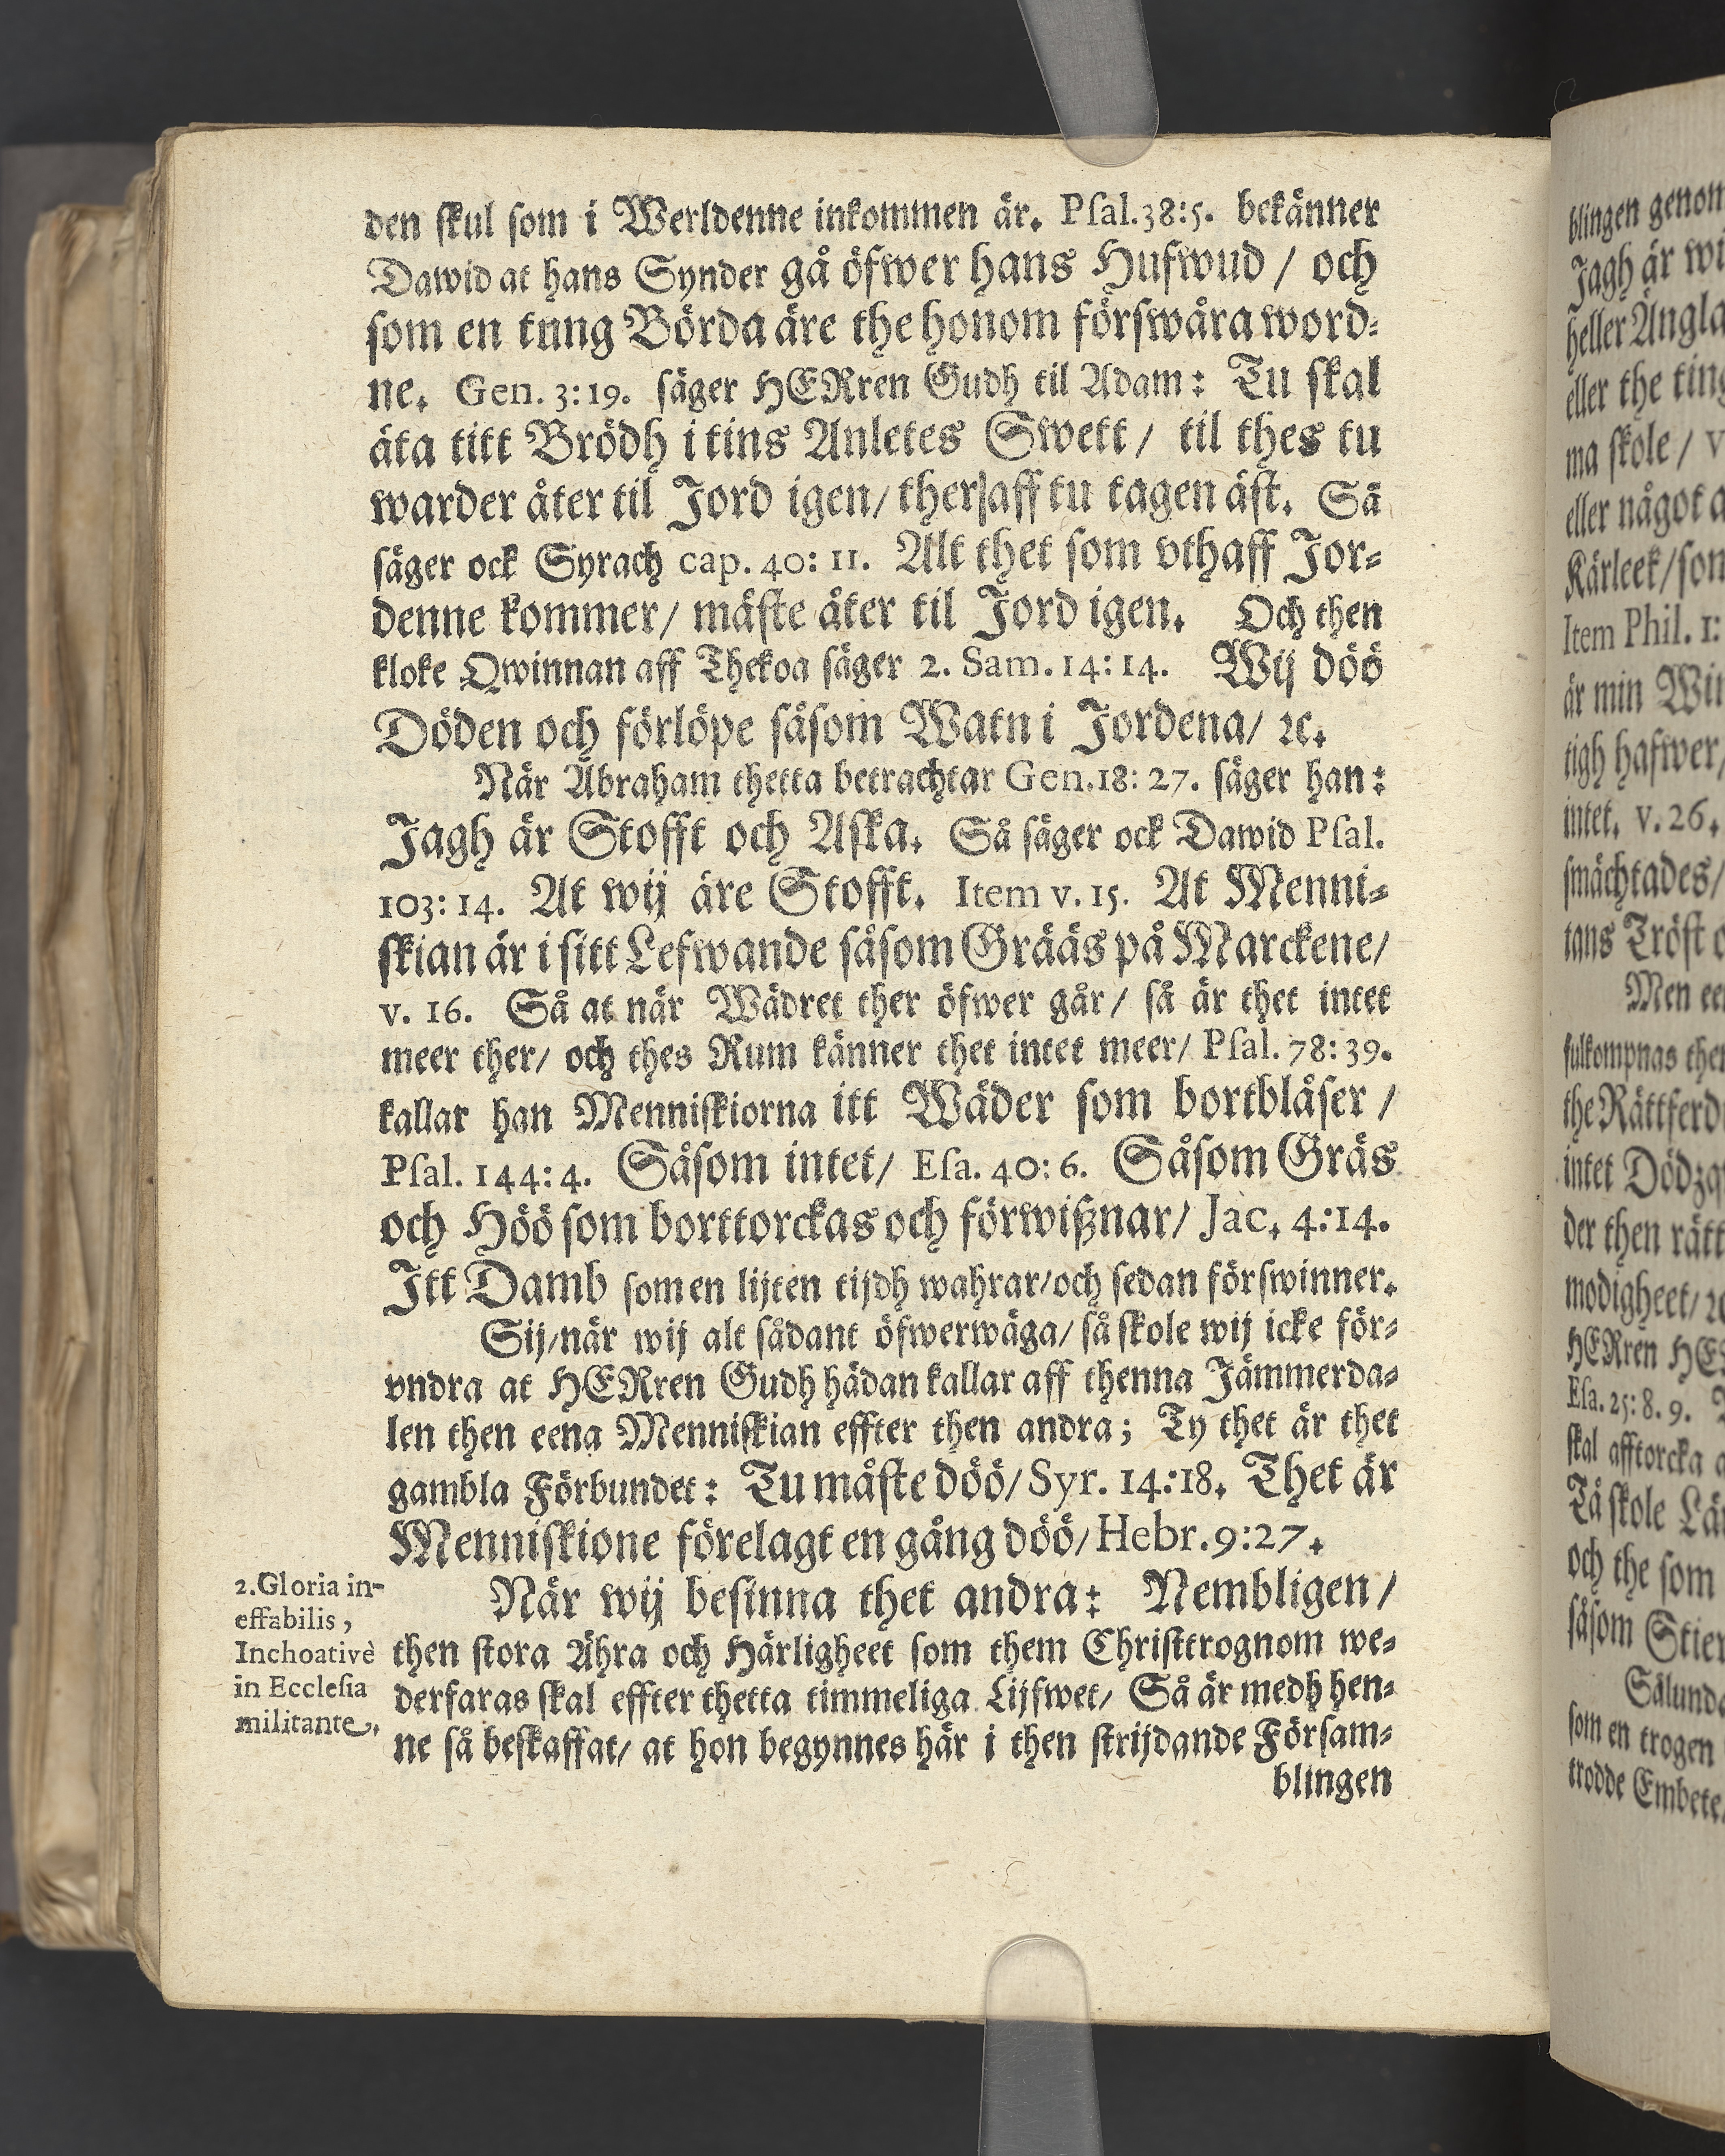 den skul som i Werldenne inkommen är. Psal. 38:5. bekänner
Dawid at hans Synder gå öfwer hans Hufwud / och
som en tung Börda äre the honom förswåra word-
ne. Gen. 3:19. säger HERren Gudh til Adam: Tu skal
äta titt Brödh i tins Anletes Swett / til thes tu
warder åter til Jord igen / ther aff tu tagen äst. Så
säger ock Syrach cap. 40: 11. Alt thet som vthaff Jor-
denne kommer / måste åter til Jord igen. Och then
kloke Qwinnan aff Thekoa säger 2. Sam. 14: 14. Wij döö
Döden och förlöpe såsom Watn i Jordena / ꝛc.
När Abraham thetta betrachtar Gen. 18: 27. säger han:
Jagh är Stofft och Aska. Så säger ock Dawid Psal.
103: 14. At wij äre Stofft. Item v. 15. At Menni-
skian är i sitt Lefwande såsom Grääs på Marckene /
v. 16. Så at när Wädret ther öfwer går / så är thet intet
meer ther / och thes Rum känner thet intet meer / Psal. 78: 39.
kallar han Menniskiorna itt Wäder som bortblåser /
Psal. 144: 4. Såsom intet / Esa. 40: 6. Såsom Gräs
och Höö som borttorckas och förwißnar / Jac. 4:14.
Itt Damb som en lijten tijdh wahrar / och sedan förswinner.
Sij / när wij alt sådant öfwerwäga / så skole wij icke för-
vndra at HERren Gudh hädan kallar aff thenna Jämmerda-
len then eena Menniskian effter then andra; Ty thet är thet
gambla Förbundet: Tu måste döö / Syr. 14:18. Thet är
Menniskione förelagt en gång döö / Hebr. 9:27.
När wij besinna thet andra: Nembligen /
then stora Ähra och Härligheet som them Christtrognom we-
derfaras skal effter thetta timmeliga Lijfwet / Så är medh hen-
ne så beskaffat / at hon begynnes här i then strijdande Försam-
blingen
2. Gloria in-
effabilis,
Inchoativè
in Ecclesia
militante.
blingen genom
Jagh är
heller Ängla
eller the
ma skole /
eller något
Kärleek / som
Item Phil. 1:
är min
tigh hafwer /
intet. v. 26.
smächtades /
tans Tröst
Men
fulkompnas
the
intet
der then
modigheet / ꝛc
HERren
Esa. 25: 8. 9.
skal afftorcka
Tå skole
och the som
såsom
som en trogen
trodde Embete